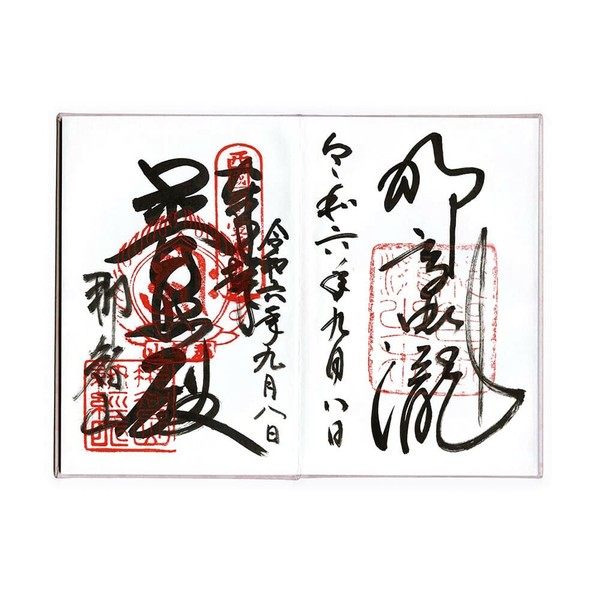 那智御瀧
令和六年九月八日
令和六年九月八日
奉拝
普照殿
那智山